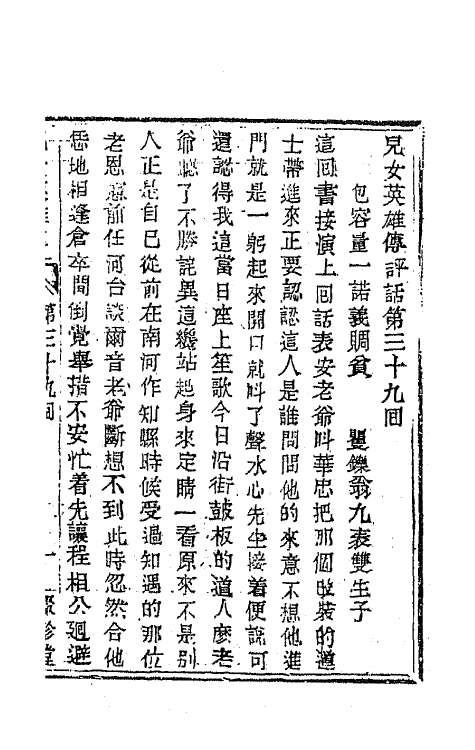 兒女英雄傳評話第三十九回
包容量一諾義賙貧　矍鑠翁九袠雙生子
這回書接演上回話表安老爺呌華忠把那個改裝的道
士帶進來正要認認這人是誰問問他的來意不想他進
門就是一躬起來開口就呌了聲水心先生接着便說可
還認得我這當日座上笙歌今日沿街鼓板的道人麽老
爺聽了不勝詫異這纔站起身來定睛一看原來不是別
人正是自已從前在南河作知縣時候受過知遇的那位
老恩憲前任河台談爾音老爺斷想不到此時忽然合他
恁地相逢倉卒間倒覺舉措不安忙着先讓程相公廻避
第三十九回
一
聚珍堂